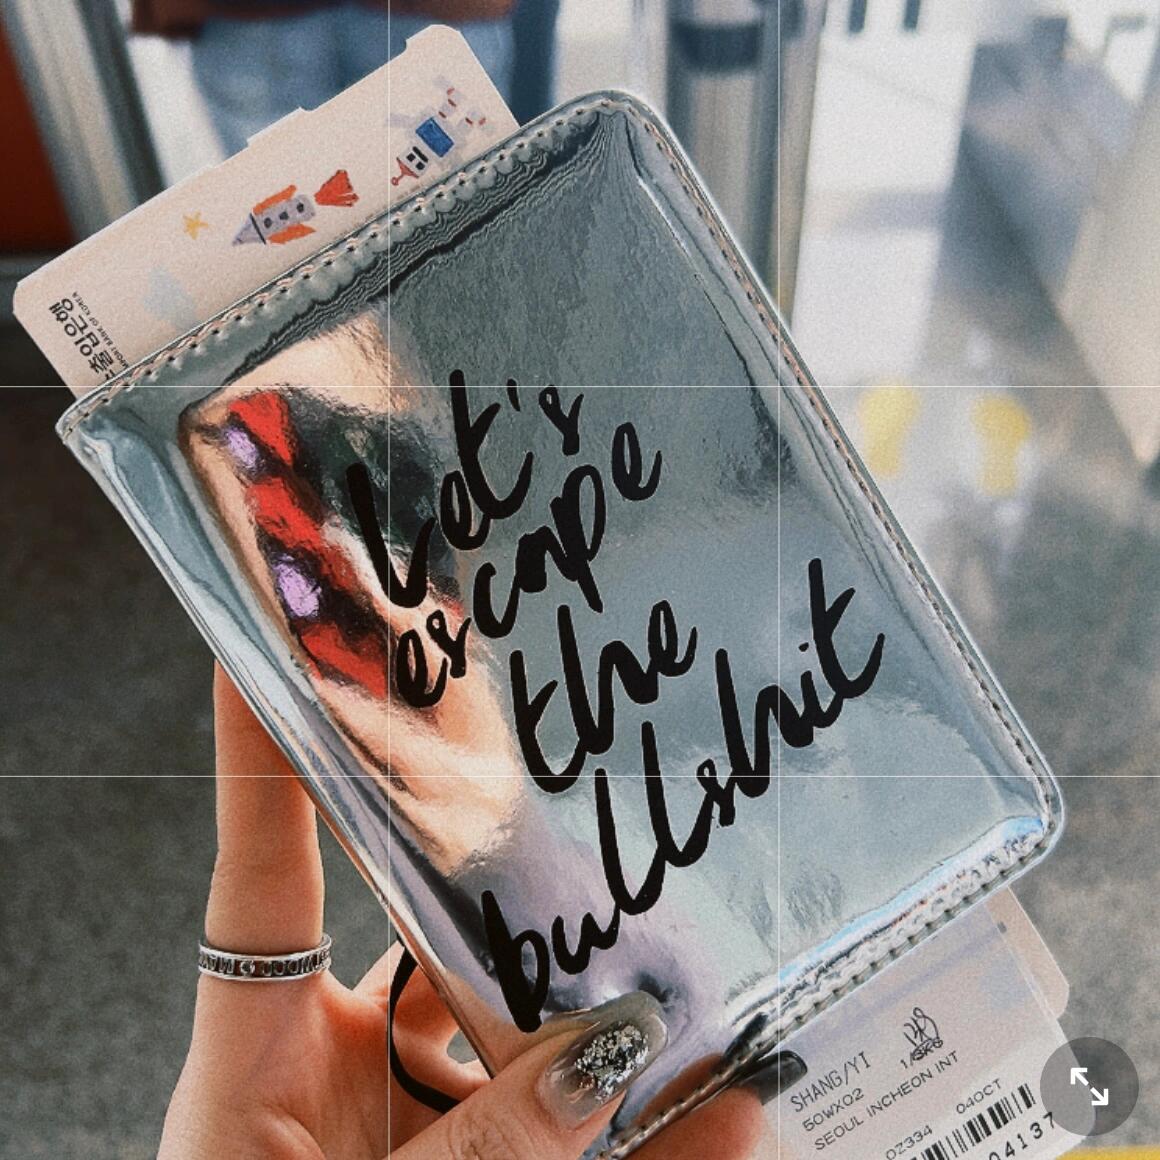 수출입은행
PORT BANK OF KOREA
Let's
escape
the
bullshit
SHANG/YI
50WX02
SEOUL INCHEON INT
OZ334 04OCT
04137